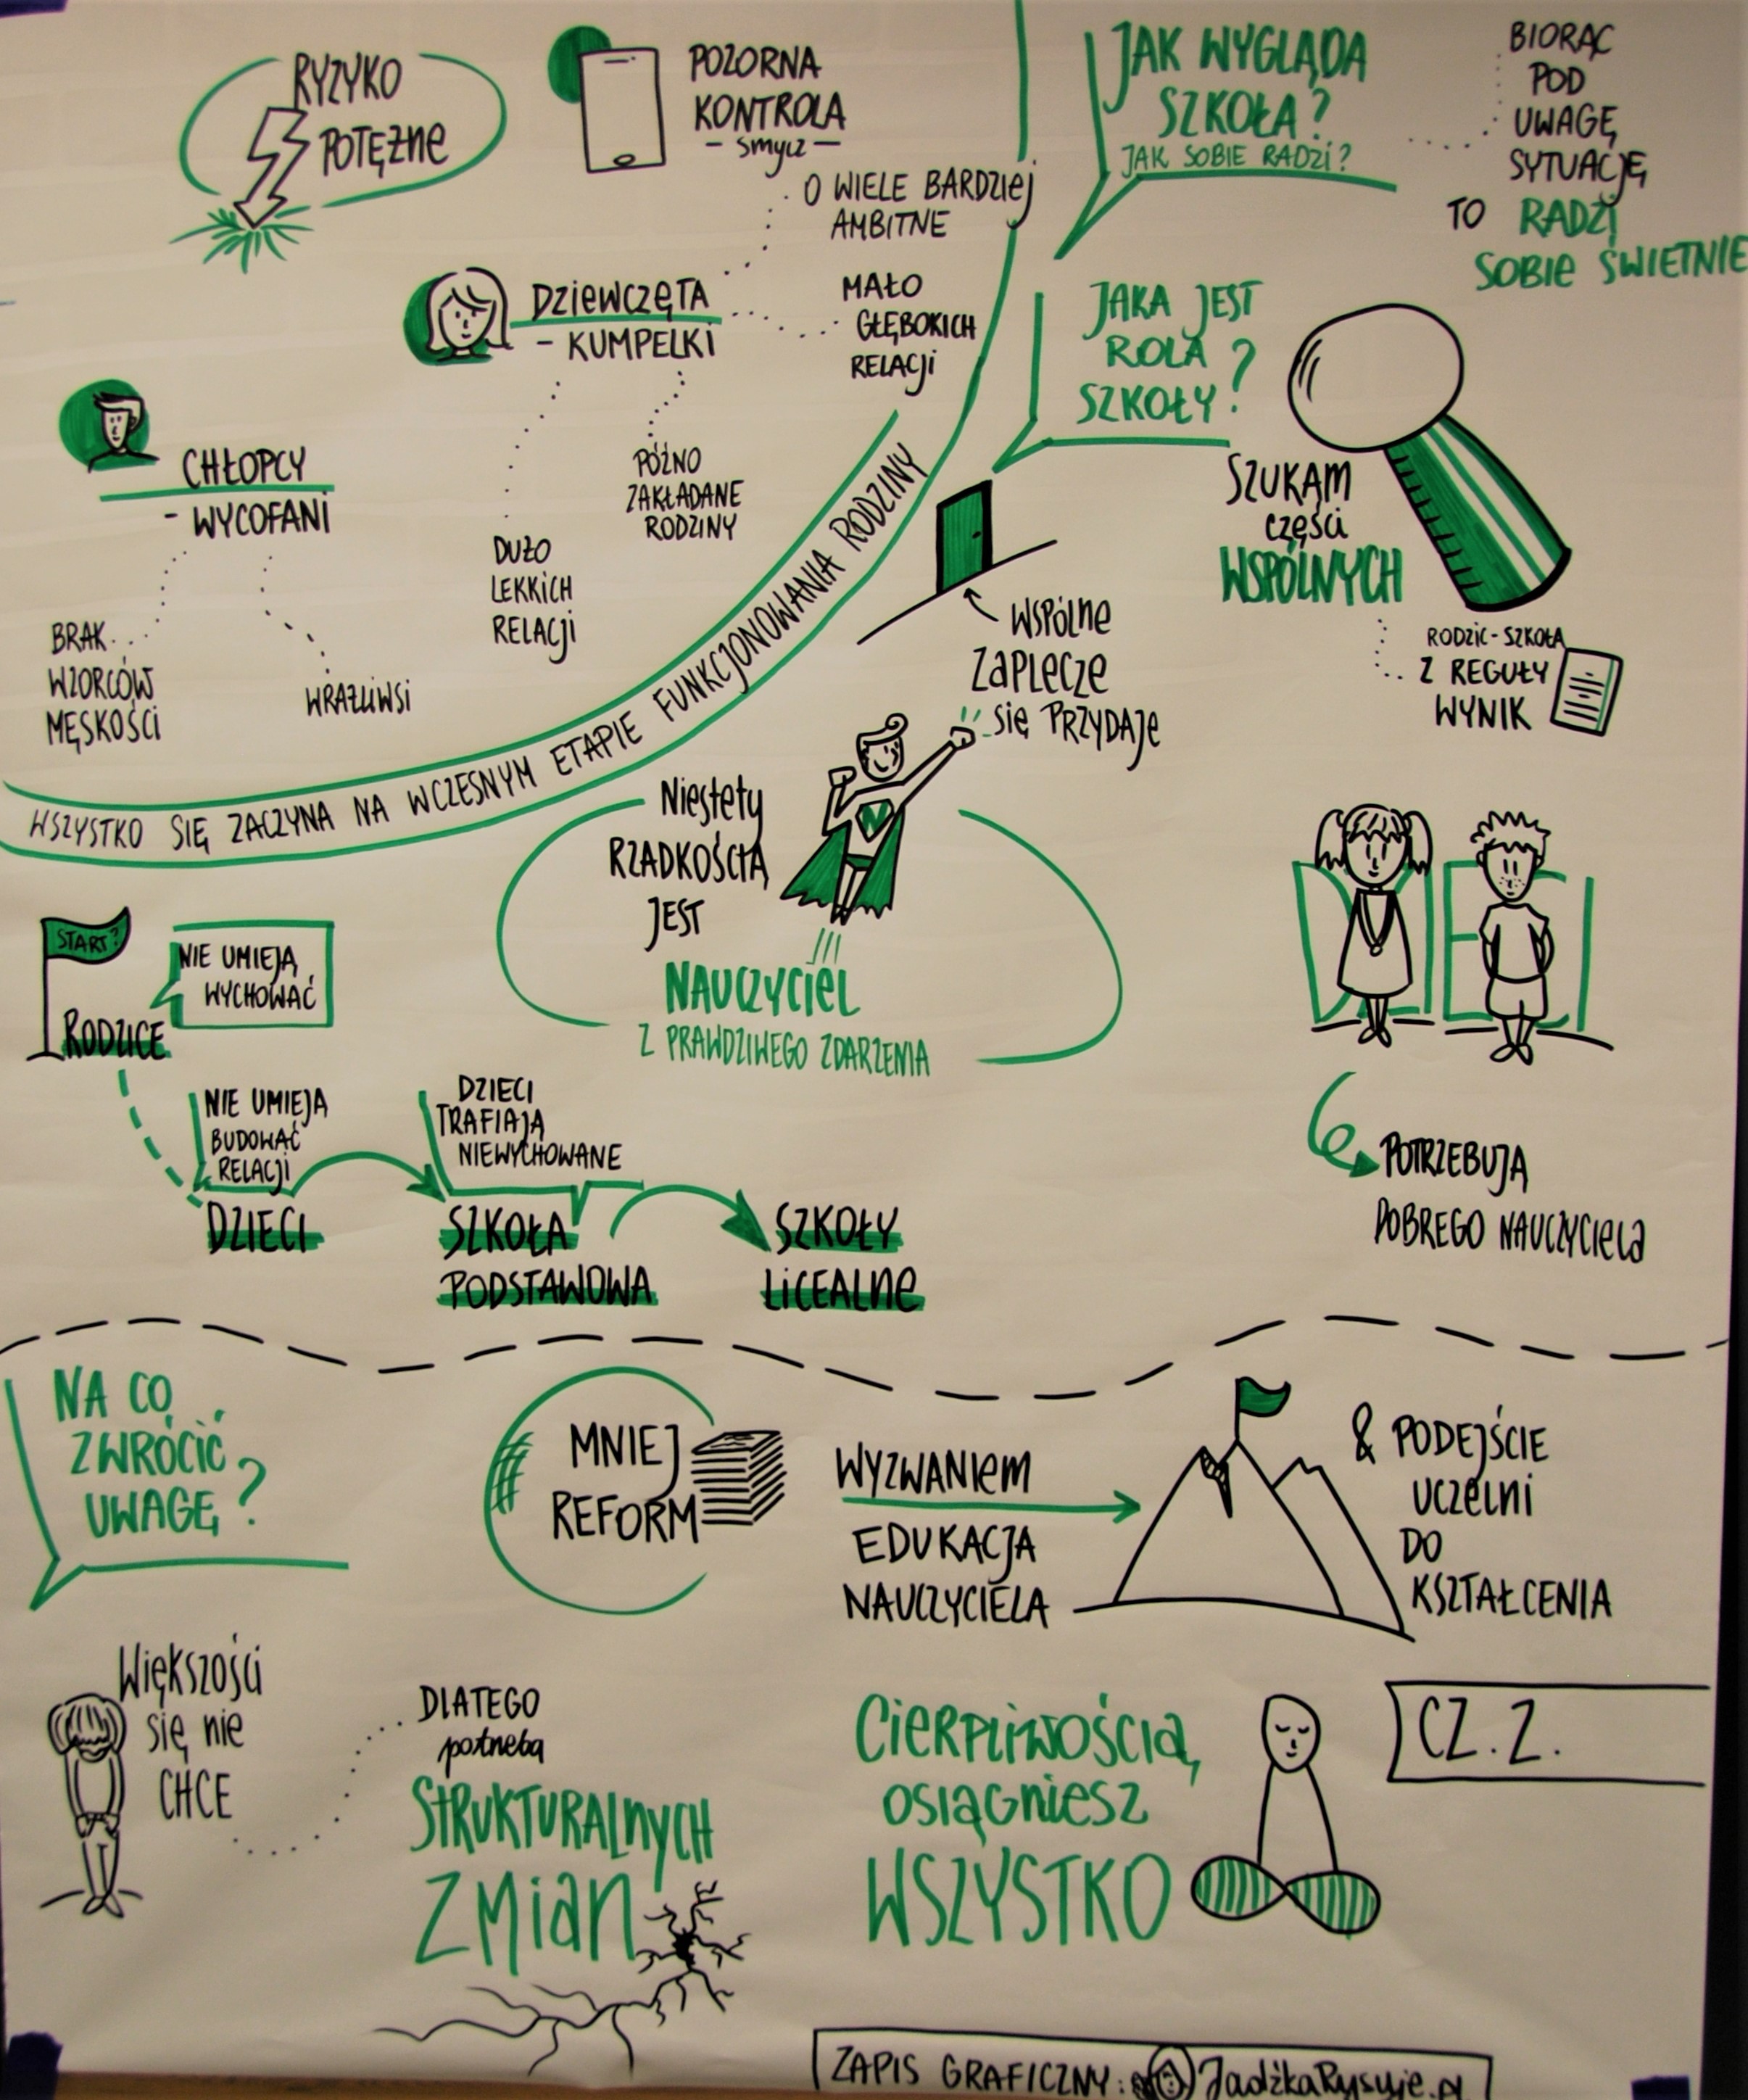 RYZYKO
POTĘŻNE
POZORNA
KONTROLA
- smycz -
O WIELE BARDZIEJ
AMBITNE
DZIEWCZĘTA
- KUMPELKI
MAŁO
GŁĘBOKICH
RELACJI
PÓŹNO
ZAKŁADANE
RODZINY
DUŻO
LEKKICH
RELACJI
CHŁOPCY
- WYCOFANI
BRAK
WZORCÓW
MĘSKOŚCI
WRAŻLIWSI
WSZYSTKO SIĘ ZACZYNA NA WCZESNYM ETAPIE FUNKCJONOWANIA RODZINY
JAK WYGLĄDA
SZKOŁA?
JAK SOBIE RADZI?
BIORĄC
POD
UWAGĘ
SYTUACJĘ
TO RADZI
SOBIE ŚWIETNIE
JAKA JEST
ROLA
SZKOŁY?
SZUKAM
CZĘŚCI
WSPÓLNYCH
RODZIC-SZKOŁA
Z REGUŁY
WYNIK
WSPÓLNE
ZAPLECZE
SIĘ PRZYDAJE
Niestety
RZADKOŚCIĄ
JEST
N
NAUCZYCIEL
Z PRAWDZIWEGO ZDARZENIA
START?
RODZICE
NIE UMIEJĄ
WYCHOWAĆ
NIE UMIEJĄ
BUDOWAĆ
RELACJI
DZIECI
DZIECI
TRAFIAJĄ
NIEWYCHOWANE
SZKOŁA
PODSTAWOWA
SZKOŁY
LICEALNE
POTRZEBUJĄ
DOBREGO NAUCZYCIELA
NA CO
ZWRÓCIĆ
UWAGĘ?
MNIEJ
REFORM
WYZWANIEM
EDUKACJA
NAUCZYCIELA
& PODEJŚCIE
UCZELNI
DO
KSZTAŁCENIA
WIĘKSZOŚCI
SIĘ NIE
CHCE
DLATEGO
potrzeba
STRUKTURALNYCH
ZMIAN!
CIERPLIWOŚCIĄ
OSIĄGNIESZ
WSZYSTKO
CZ. 2.
ZAPIS GRAFICZNY: JadźkaRysuje.pl